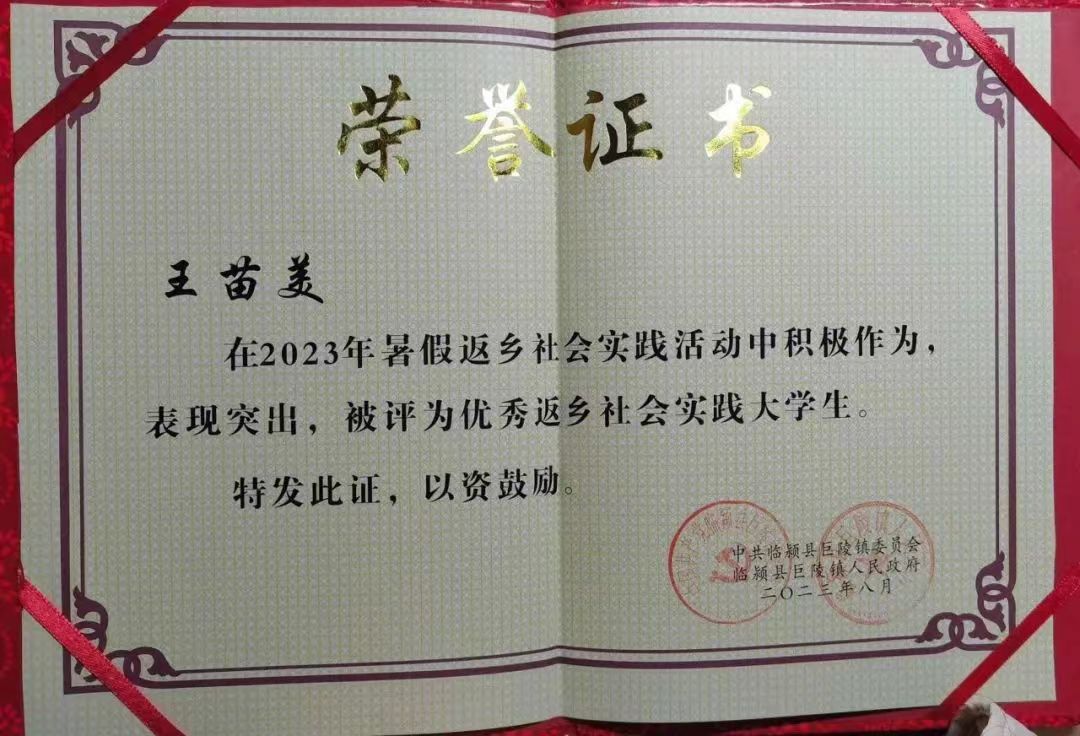 荣誉证书
王苗美
在2023年暑假返乡社会实践活动中积极作为，
表现突出，被评为优秀返乡社会实践大学生。
特发此证，以资鼓励。
中共临颍县巨陵镇委员会
临颍县巨陵镇人民政府
二〇二三年八月